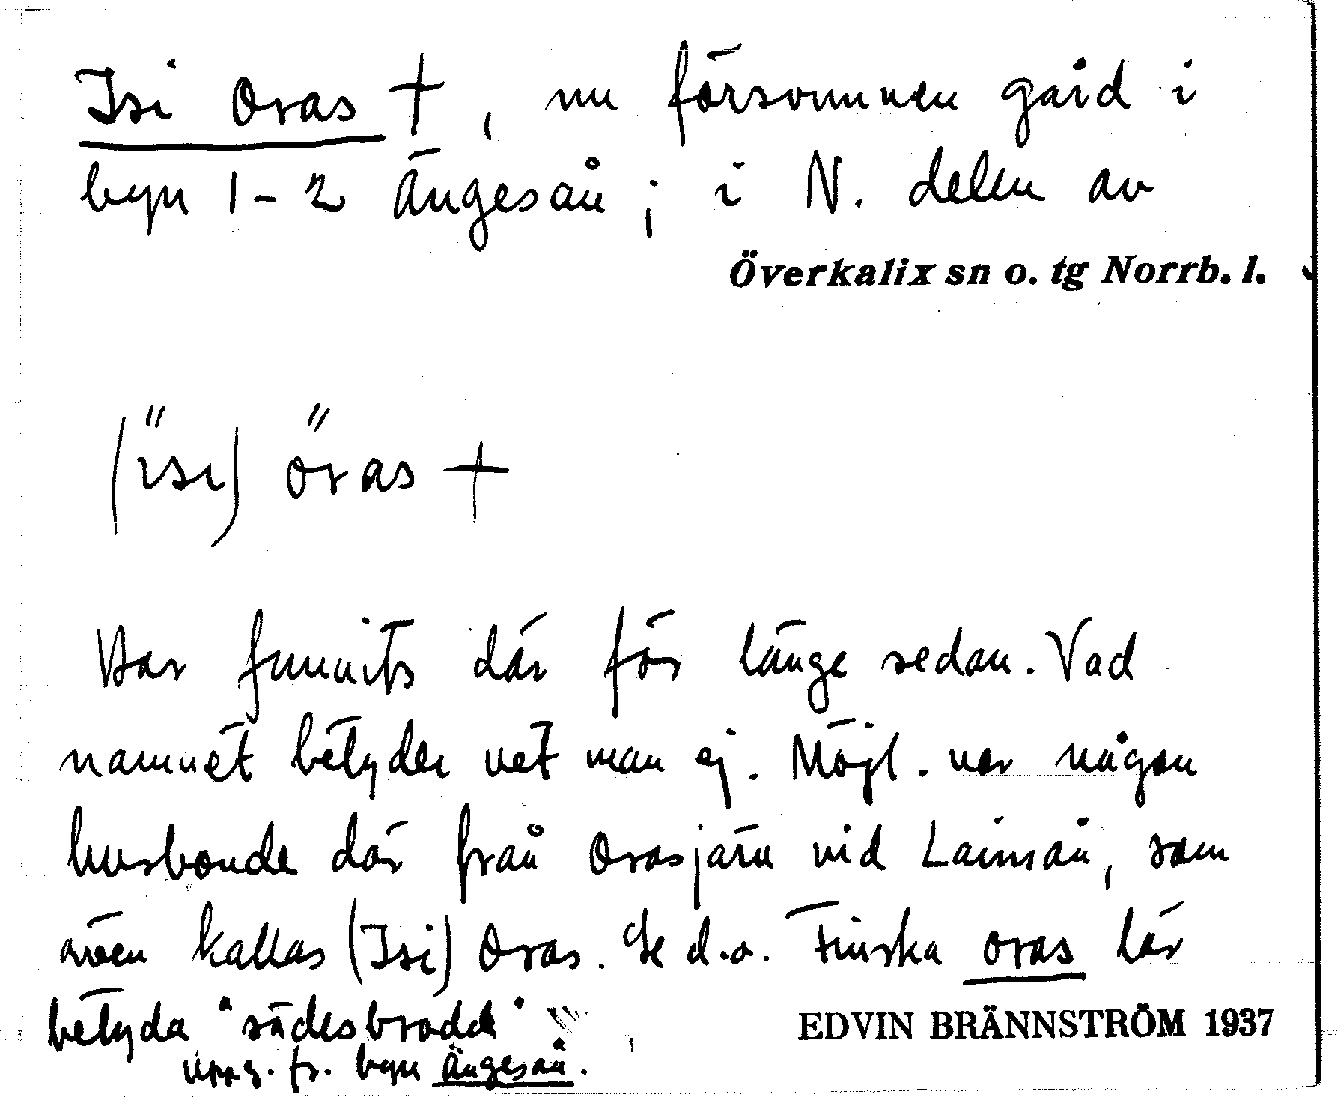 Isi Oras +, nu försvunnen gård i
byn 1-2 Ängesån; i N. delen av
Överkalix sn o. tg Norrb. l.
(ïsi) öras +
Har funnits där för länge sedan. Vad
namnet betyder vet man ej. Möjl. var någon
husbonde där från Orasjärv vid Lainsån, som
även kallas (Isi) Oras. Se d.o. Finska oras lär
betyda "sädesbrodd"
EDVIN BRÄNNSTRÖM 1937
Uppg. fr. byn Ängesån.